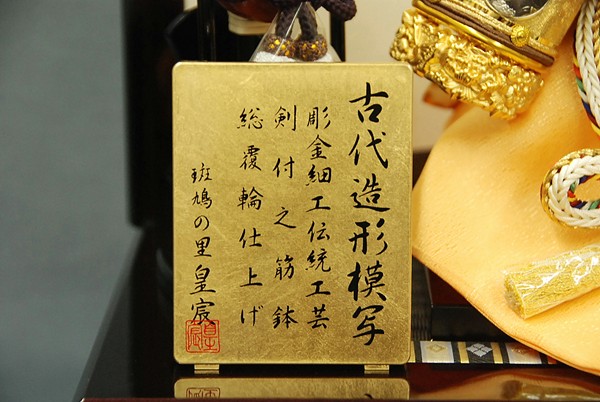 古代造形模写
彫金細工伝統工芸
剣付之筋鉢
総覆輪仕上げ
斑鳩の里皇宸
皇宸